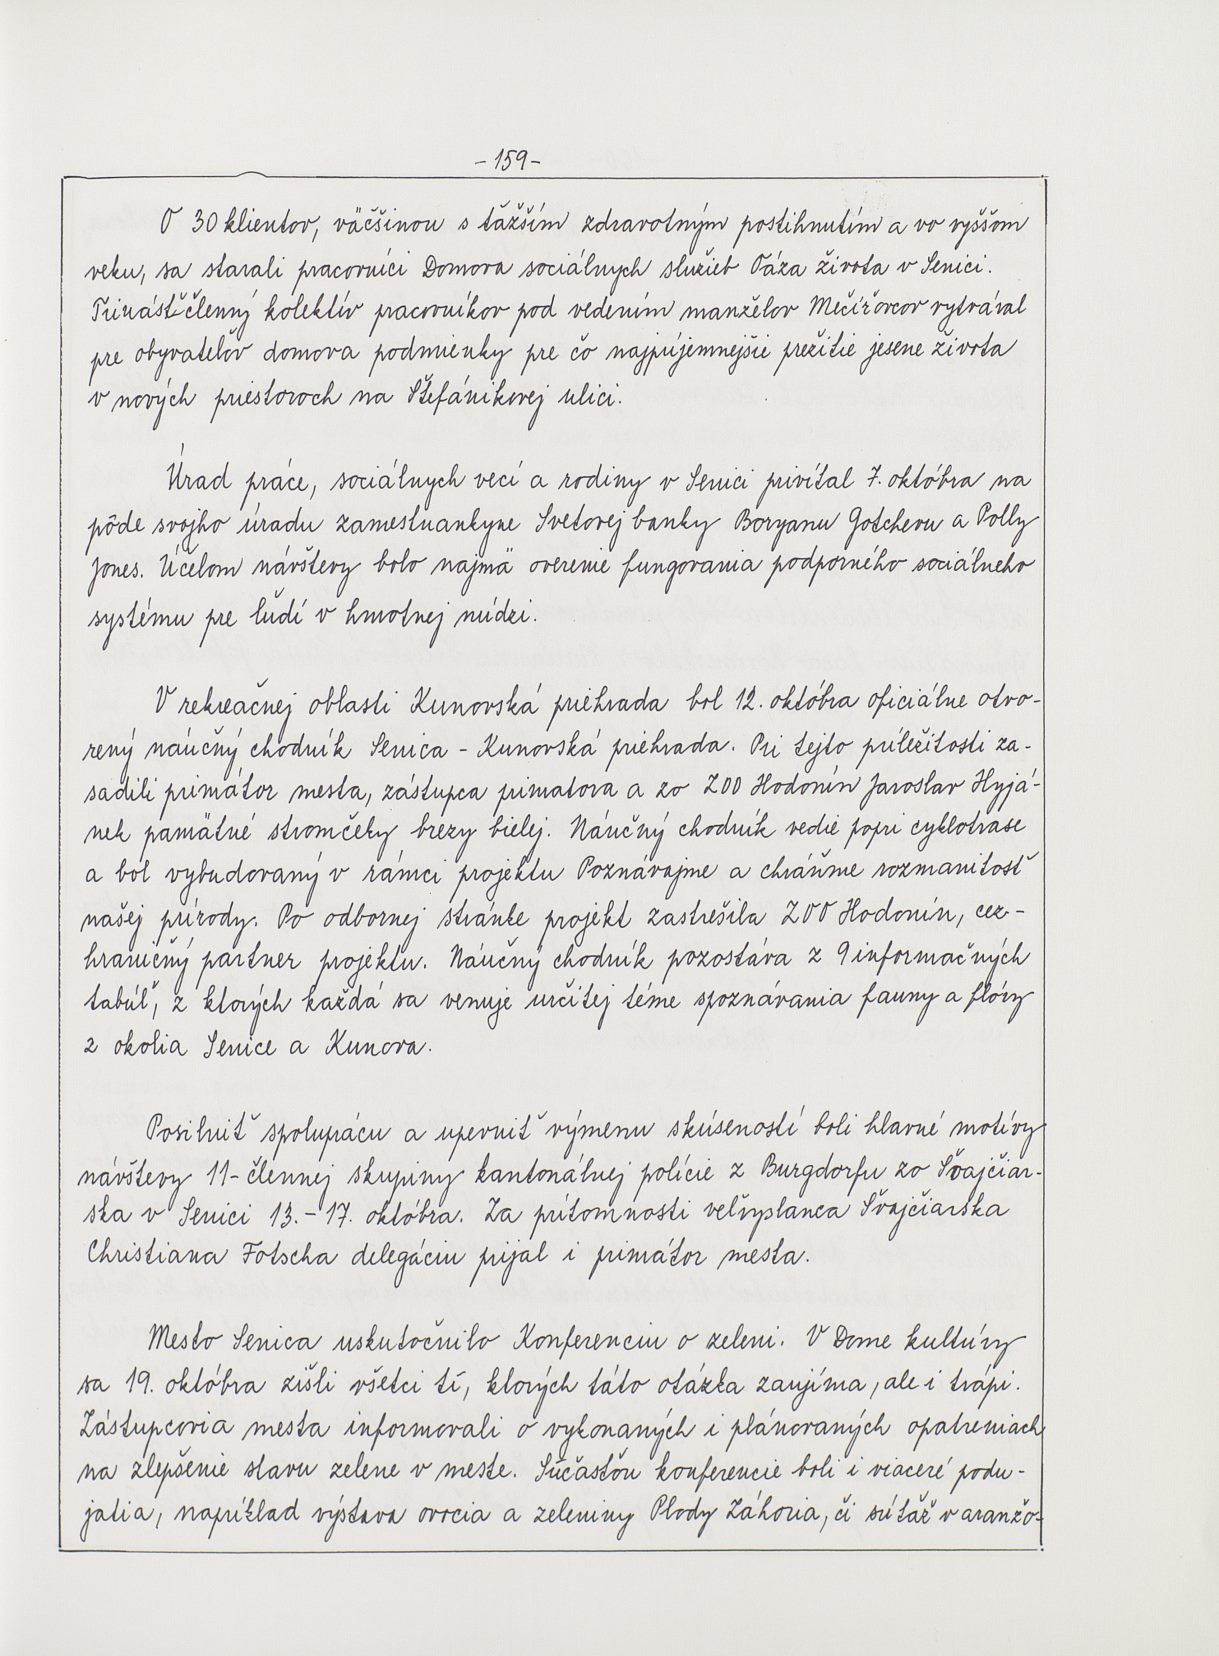 -159-
O 30 klientov, väčšinou s ťažším zdravotným postihnutím a vo vyššom
veku, sa starali pracovníci Domova sociálnych služieb Oáza života v Senici.
Trinásťčlenný kolektív pracovníkov pod vedením manželov Mečířovcov vytváral
pre obyvateľov domova podmienky pre čo najpríjemnejšie prežitie jesene života
v nových priestoroch na Štefánikovej ulici.
Úrad práce, sociálnych vecí a rodiny v Senici privítal 7. októbra na
pôde svojho úradu zamestnankyne Svetovej banky Boryanu Gotchevu a Polly
Jones. Účelom návštevy bolo najmä overenie fungovania podporného sociálneho
systému pre ľudí v hmotnej núdzi.
V rekreačnej oblasti Kunovská priehrada bol 12. októbra oficiálne otvo-
rený náučný chodník Senica - Kunovská priehrada. Pri tejto príležitosti za-
sadili primátor mesta, zástupca primátora a zo ZOO Hodonín Jaroslav Hyjá-
nek pamätné stromčeky brezy bielej. Náučný chodník vedie popri cyklotrase
a bol vybudovaný v rámci projektu Poznávajme a chráňme rozmanitosť
našej prírody. Po odbornej stránke projekt zastrešila ZOO Hodonín, cez-
hraničný partner projektu. Náučný chodník pozostáva z 9 informačných
tabúľ, z ktorých každá sa venuje určitej téme spoznávania fauny a flóry
z okolia Senice a Kunova.
Posilniť spoluprácu a upevniť výmenu skúseností boli hlavné motívy
návštevy 11-člennej skupiny kantonálnej polície z Burgdorfu zo Švajčiar-
ska v Senici 13.-17. októbra. Za prítomnosti veľvyslanca Švajčiarska
Christiana Fotscha delegáciu prijal i primátor mesta.
Mesto Senica uskutočnilo Konferenciu o zeleni. V Dome kultúry
sa 19. októbra zišli všetci tí, ktorých táto otázka zaujíma, ale i trápi.
Zástupcovia mesta informovali o vykonaných i plánovaných opatreniach
na zlepšenie stavu zelene v meste. Súčasťou konferencie boli i viaceré podu-
jatia, napríklad výstava ovocia a zeleniny Plody Záhoria, či súťaž v aranžo-